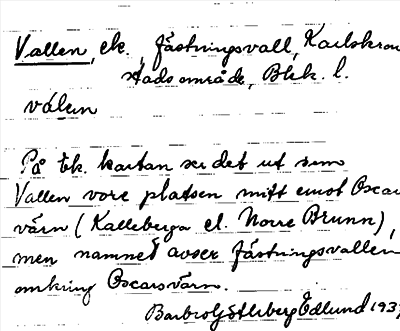 Vallen, ek., fästningsvall, Karlskron
stadsområde, Blek. l.
válen
På Ek. kartan ser det ut som
Vallen vore platsen mitt emot Oscar
värn (Kalleberga el. Norre Brunn),
men namnet avser fästningsvallen
omkring Oscarsvärn.
Barbro Götleberg Edlund 193